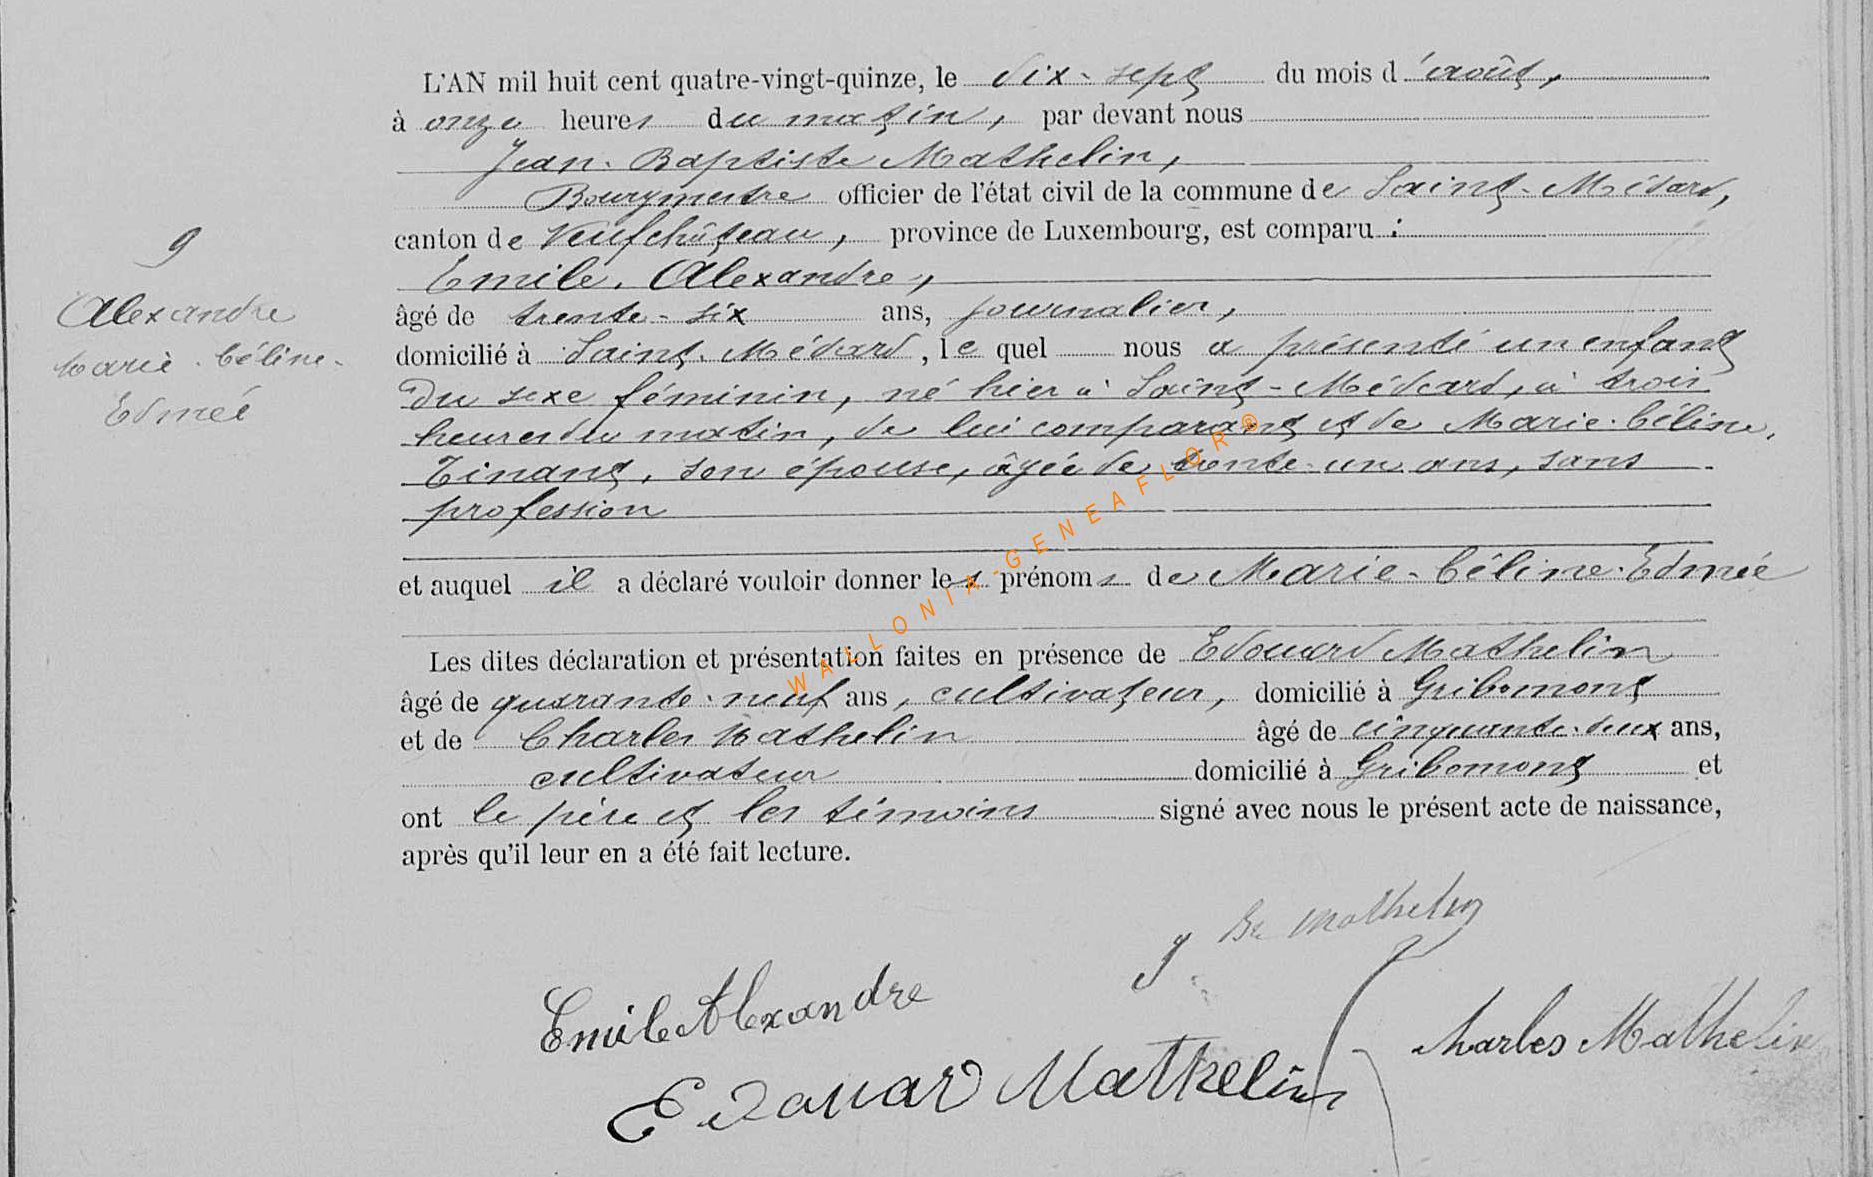 L'AN mil huit cent quatre-vingt-quinze, le dix-sept du mois d'août,
à onze heures du matin, par devant nous
Jean-Baptiste Mathelin,
Bourgmestre officier de l'état civil de la commune de Saint-Médard,
canton de Neufchâteau, province de Luxembourg, est comparu :
Emile Alexandre,
âgé de trente-six ans, journalier,
domicilié à Saint-Médard, le quel nous a présenté un enfant
du sexe féminin, né hier à Saint-Médard, à trois
heures du matin, de lui comparant et de Marie-Céline
Tinant, son épouse, âgée de trente-un ans, sans
profession
et auquel il a déclaré vouloir donner les prénoms de Marie-Céline-Edmée
Les dites déclaration et présentation faites en présence de Edouard Mathelin
âgé de quarante-neuf ans, cultivateur, domicilié à Gribomont
et de Charles Mathelin âgé de cinquante-deux ans,
cultivateur domicilié à Gribomont et
ont le père et les témoins signé avec nous le présent acte de naissance,
après qu'il leur en a été fait lecture.
9
Alexandre
Marie-Céline-
Edmée
J Bte Mathelin
Emile Alexandre
Charles Mathelin
Edouard Mathelin
WALLONIA-GENEAFLOR®